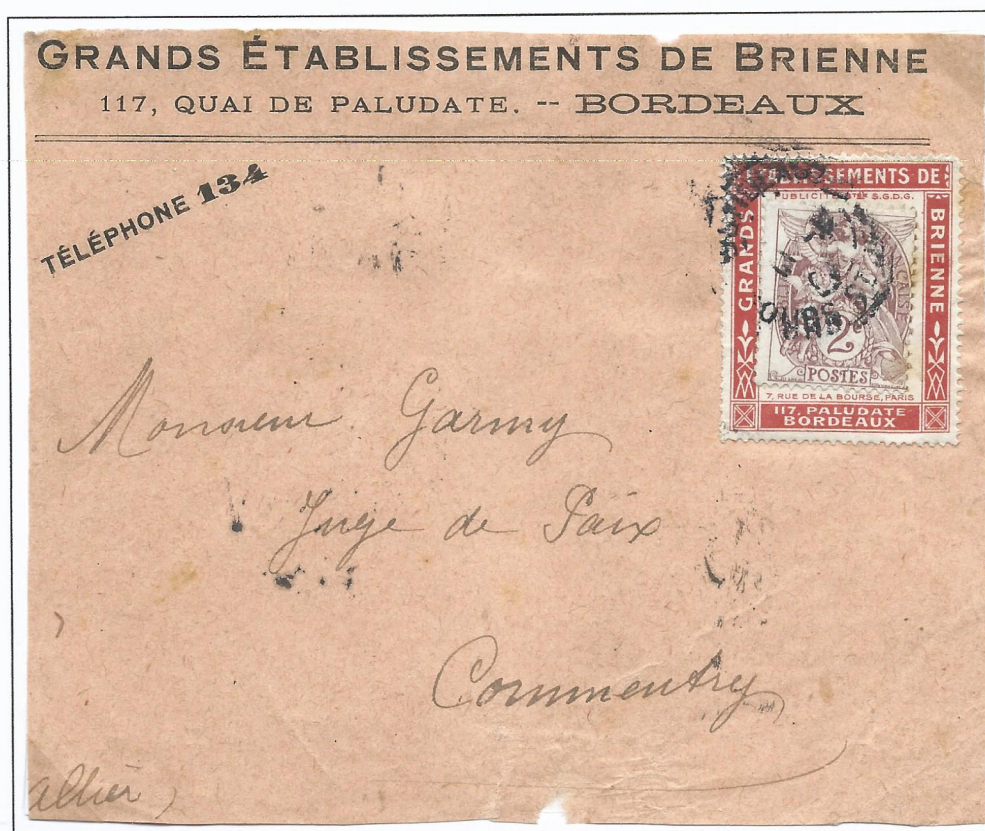 GRANDS ÉTABLISSEMENTS DE BRIENNE
117, QUAI DE PALUDATE. -- BORDEAUX
TÉLÉPHONE 134
ETABLISSEMENTS DE
PUBLICITÉ S.G.D.G.
GRANDS
BRIENNE
2c
POSTES
7, RUE DE LA BOURSE, PARIS
117, PALUDATE
BORDEAUX
Monsieur Garmy
Juge de Paix
Commentry
Allier